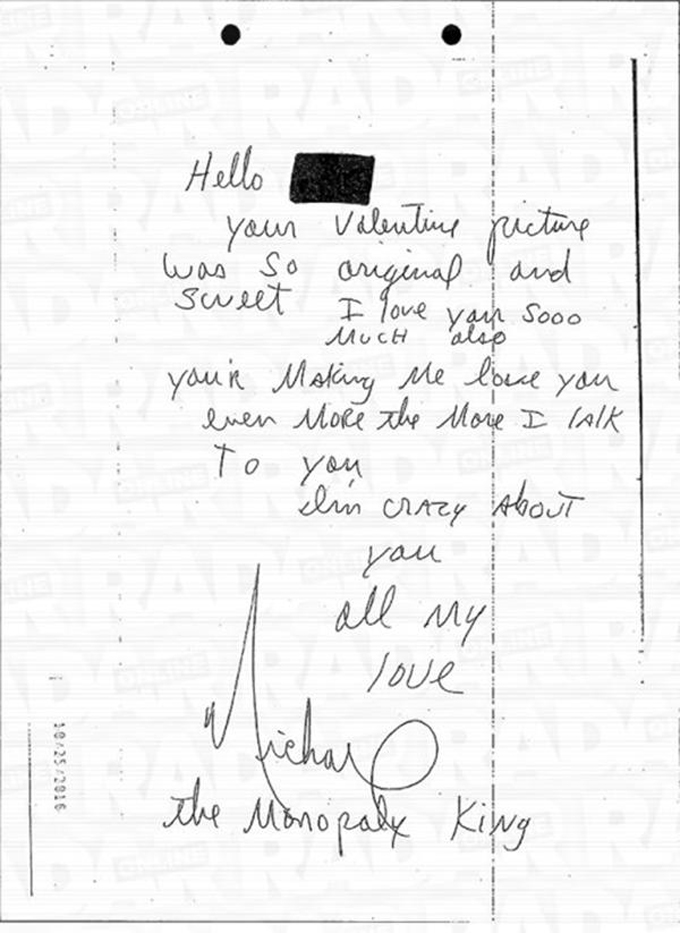 Hello
your Valentine picture
was so original and
sweet I love you sooo
much also
your Making Me love you
even More the More I talk
To you
I'm crazy about
you
all my
love
Michael
the Monopaly King
10/25/2016